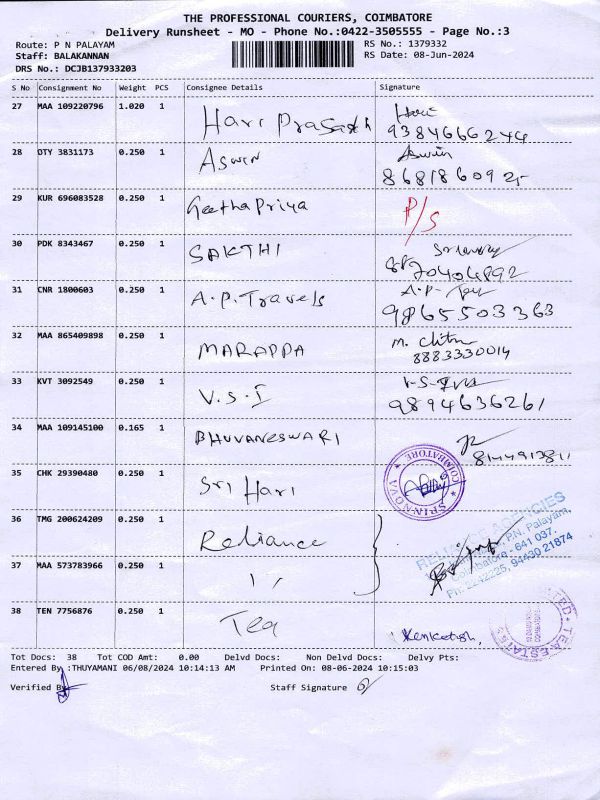 THE PROFESSIONAL COURIERS, COIMBATORE
Delivery Runsheet - MO - Phone No.:0422-3505555 - Page No.:3
Route: P N PALAYAM RS No.: 1379332
Staff: BALAKANNAN RS Date: 08-Jun-2024
DRS No.: DCJB137933203
S No Consignment No Weight PCS Consignee Details Signature
27 MAA 109220796 1.020 1 Hari Prasath Hari
9384666244
28 OTY 3831173 0.250 1 Aswin Aswin
868186092
29 KUR 696083528 0.250 1 Geetha Priya P/S
30 PDK 8343467 0.250 1 SAKTHI
31 CNR 1800603 0.250 1 A.P. Travels A.P-
9865503363
32 MAA 865409898 0.250 1 MARAPPA M.
8883330014
33 KVT 3092549 0.250 1 V.S.I V-S-
9894636261
34 MAA 109145100 0.165 1 BHUVANESWARI
35 CHK 29390480 0.250 1 Sri Hari
SPINNOVA COIMBATORE
36 TMG 200624209 0.250 1 Reliance
37 MAA 573783966 0.250 1 "
AGENCIES
P.N. Palayam,
Coimbatore - 641 037.
Ph: 2242225, 94430 21874
38 TEN 7756876 0.250 1 Tea Venkatesh.
TEA ESTATS
Tot Docs: 38 Tot COD Amt: 0.00 Delvd Docs: Non Delvd Docs: Delvy Pts:
Entered By :THUYAMANI 06/08/2024 10:14:13 AM Printed On: 08-06-2024 10:15:03
Verified By Staff Signature